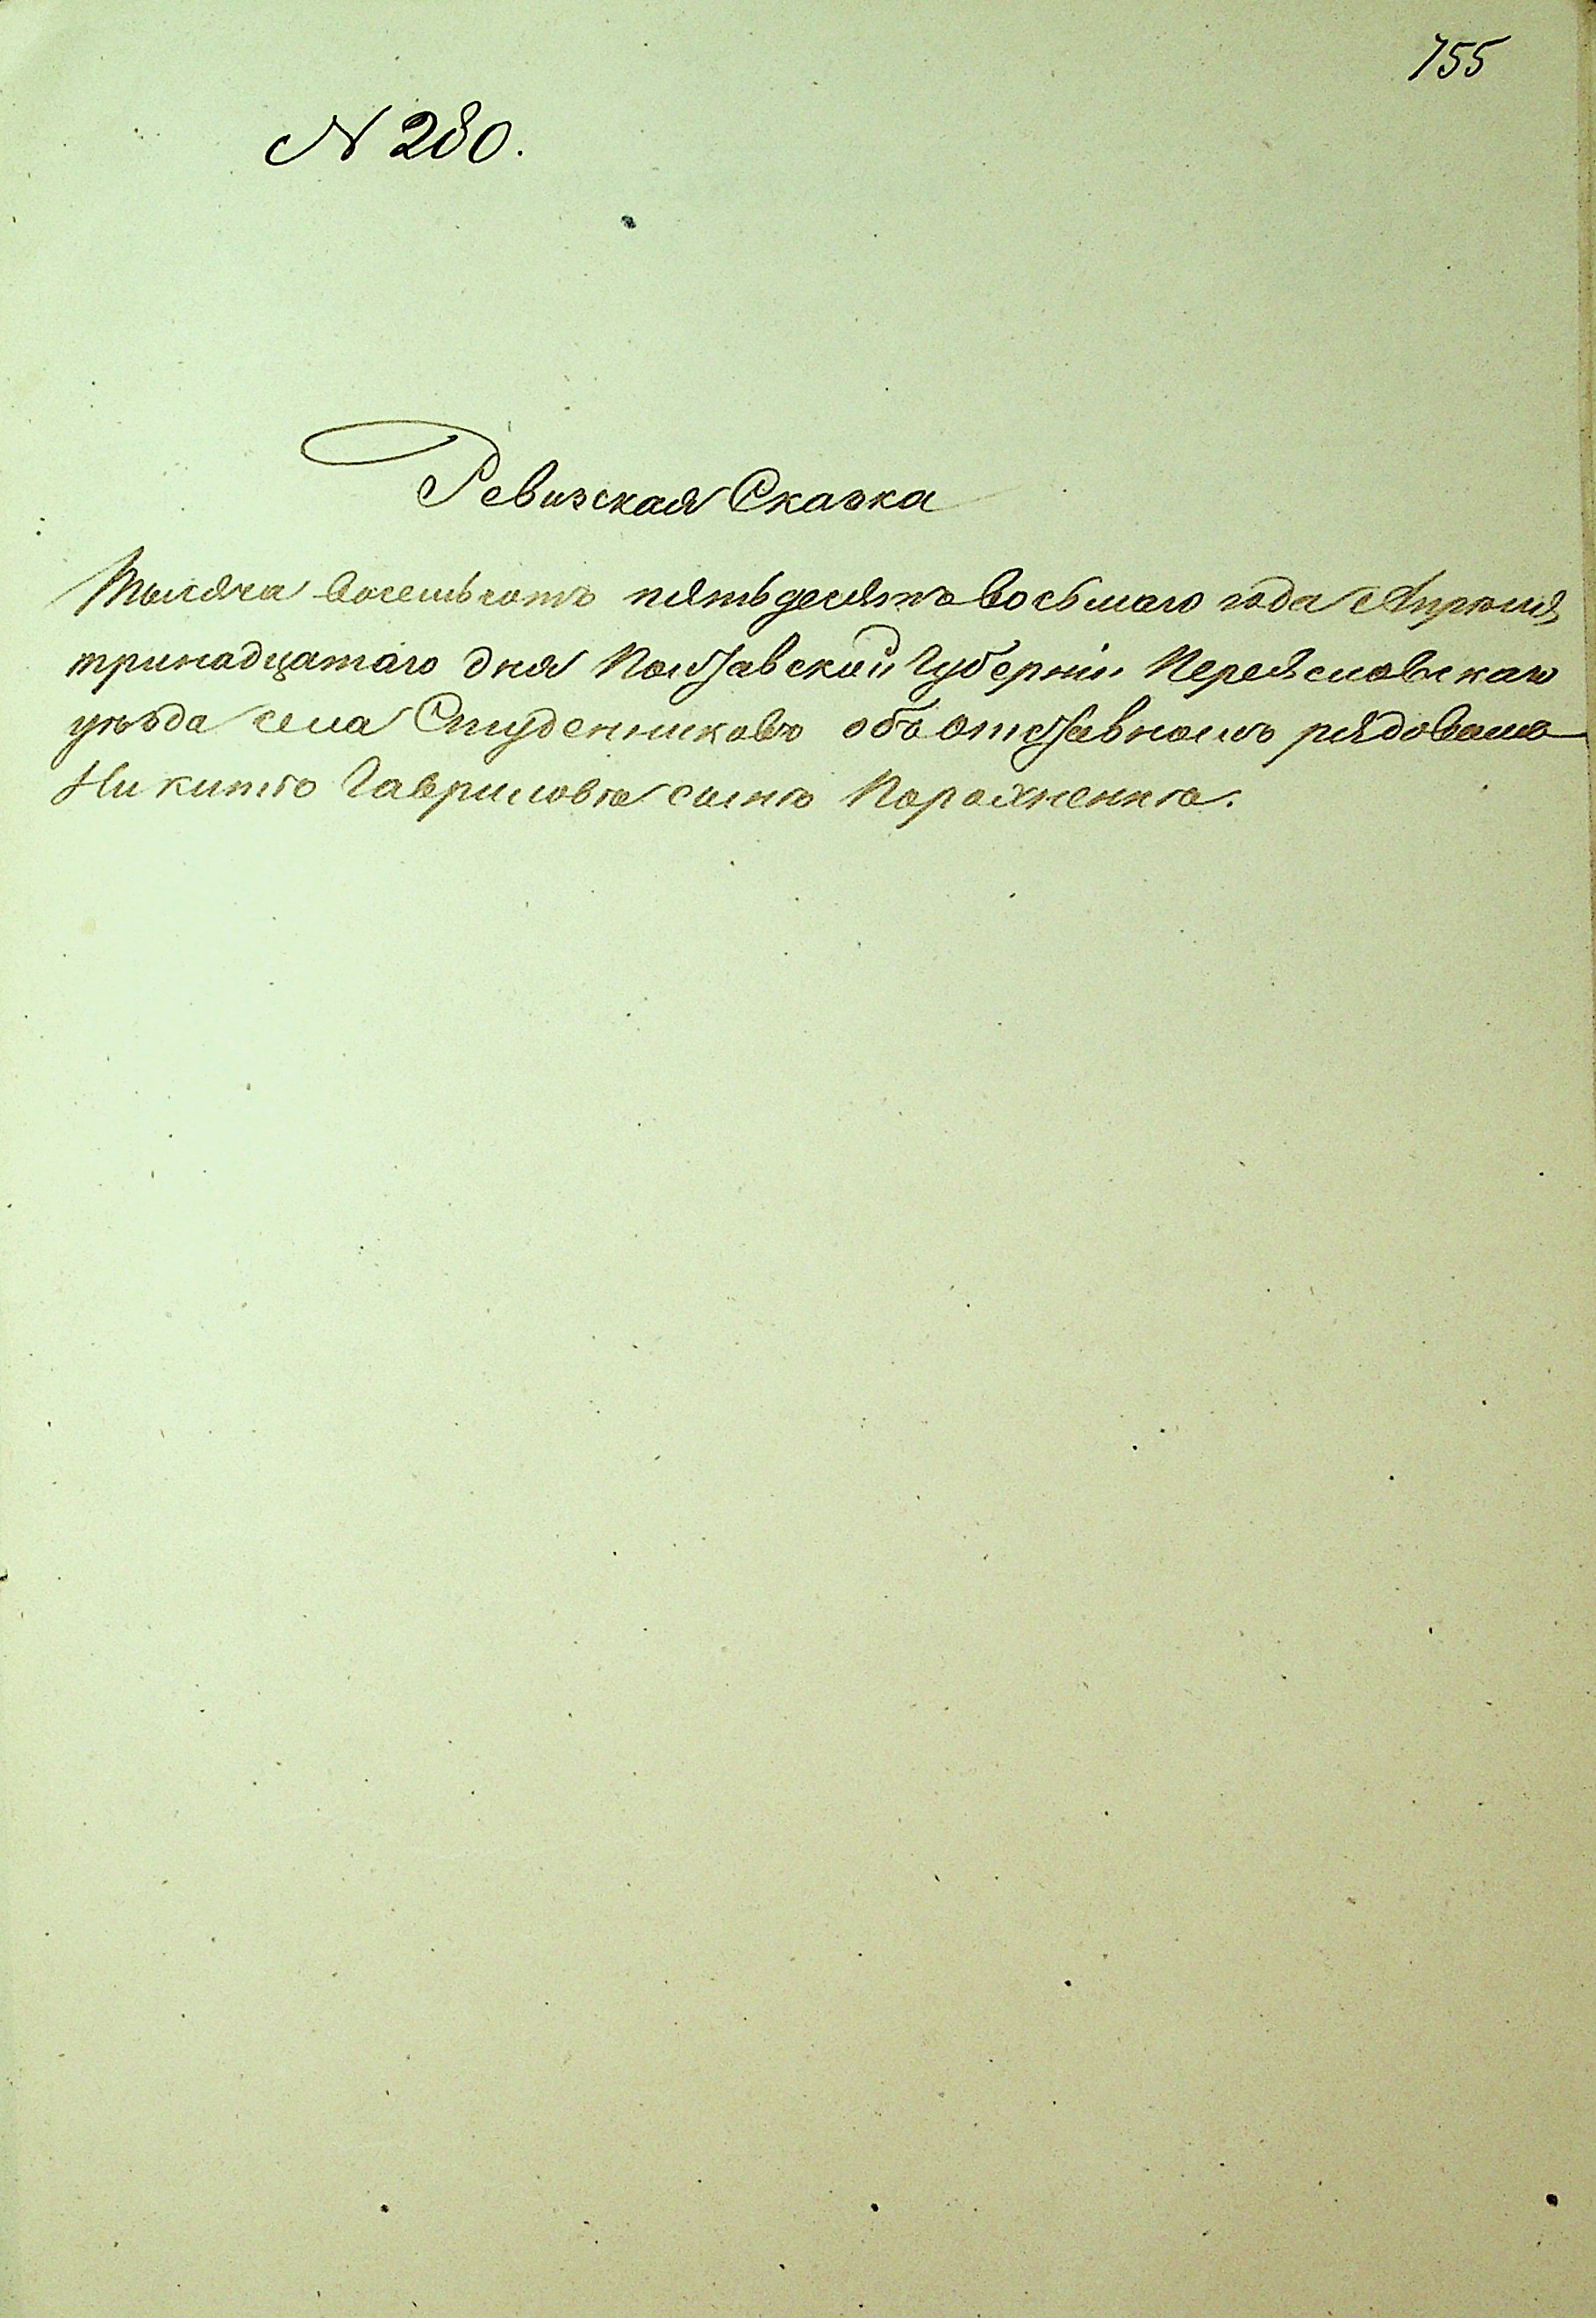 755
N 280.
Ревизская Сказка
Тысяча восемьсотъ пятьдесятъ восьмаго года Апрѣля
тринадцатаго дня Полтавской Губерніи Переяславскаго
уѣзда села Студенниковъ объ отставномъ рядовомъ
Никитѣ Гавриловѣ сынѣ